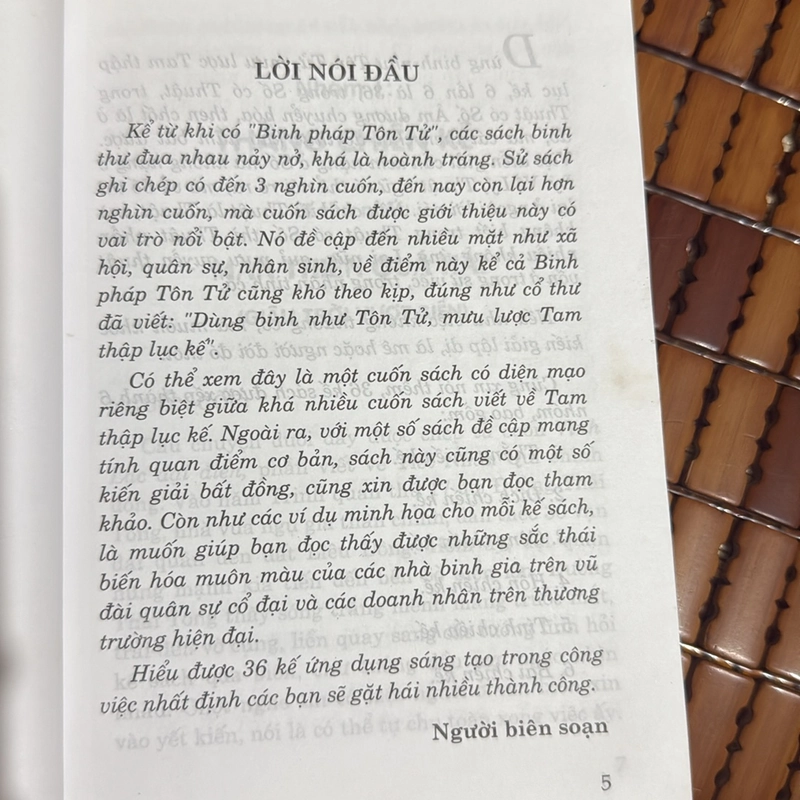 LỜI NÓI ĐẦU
Kể từ khi có "Binh pháp Tôn Tử", các sách binh
thư đua nhau nảy nở, khá là hoành tráng. Sử sách
ghi chép có đến 3 nghìn cuốn, đến nay còn lại hơn
nghìn cuốn, mà cuốn sách được giới thiệu này có
vai trò nổi bật. Nó đề cập đến nhiều mặt như xã
hội, quân sự, nhân sinh, về điểm này kể cả Binh
pháp Tôn Tử cũng khó theo kịp, đúng như cổ thư
đã viết: "Dùng binh như Tôn Tử, mưu lược Tam
thập lục kế".
Có thể xem đây là một cuốn sách có diện mạo
riêng biệt giữa khá nhiều cuốn sách viết về Tam
thập lục kế. Ngoài ra, với một số sách đề cập mang
tính quan điểm cơ bản, sách này cũng có một số
kiến giải bất đồng, cũng xin được bạn đọc tham
khảo. Còn như các ví dụ minh họa cho mỗi kế sách,
là muốn giúp bạn đọc thấy được những sắc thái
biến hóa muôn màu của các nhà binh gia trên vũ
đài quân sự cổ đại và các doanh nhân trên thương
trường hiện đại.
Hiểu được 36 kế ứng dụng sáng tạo trong công
việc nhất định các bạn sẽ gặt hái nhiều thành công.
Người biên soạn
5